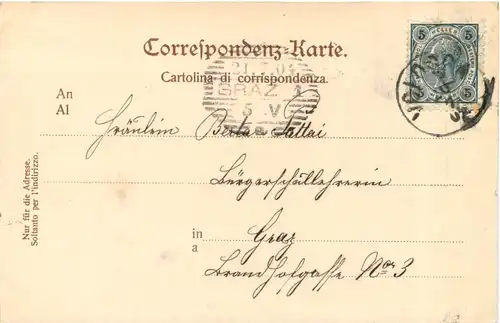 Correspondenz-Karte.
Cartolina di corrispondenza.
An
Al
Fräulein Berta
Bürgerschullehrerin
in
a
Graz
Brandhofgasse Nro 3
Nur für die Adresse.
Soltanto per l'indirizzo.
GRAZ 1
5 V
5 5
HELLER
5 5